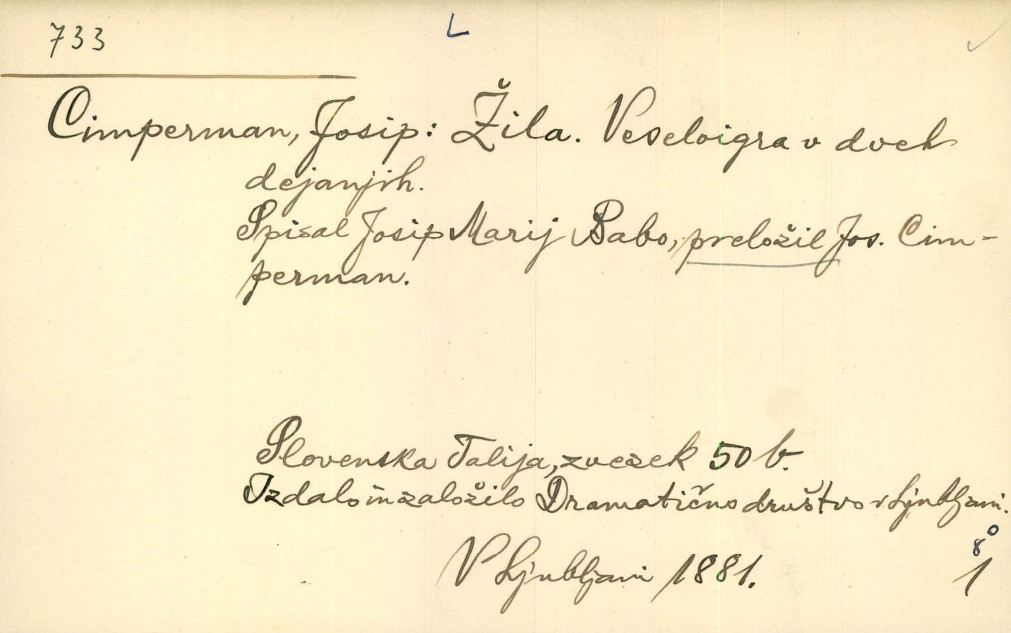 733
L
Cimperman, Josip: Žila. Veseloigra v dveh
dejanjih.
Spisal Josip Marij Babo, preložil Jos. Cim-
perman.
Slovenska Talija, zvezek 50 b.
Izdalo in založilo Dramatično društvo v Ljubljani.
8°
V Ljubljani 1881.
1